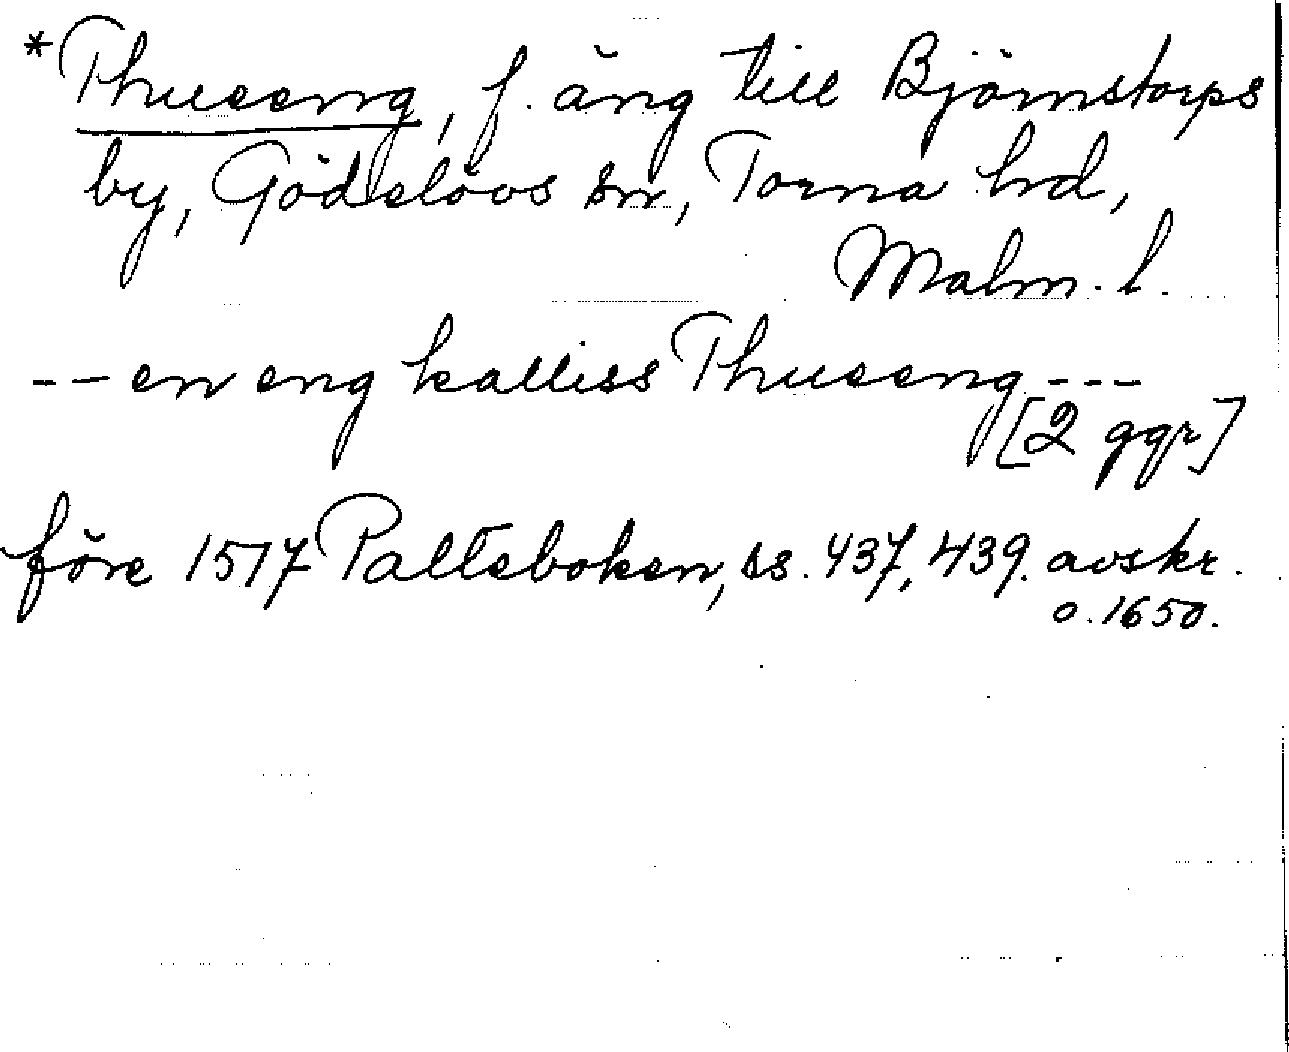 *Thueeng, f. äng till Björnstorps
by, Gödelövs sn, Torna hd,
Malm. l.
-- en eng kalliss Thueeng ---
[2 ggr]
före 1517 Palteboken, ss. 437, 439. avskr.
o. 1650.